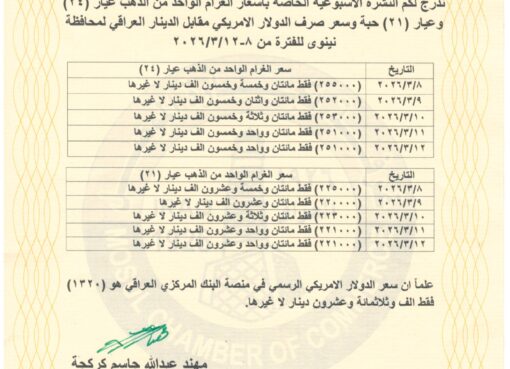 ندرج لكم النشرة الاسبوعية الخاصة بأسعار الغرام الواحد من الذهب عيار (٢٤)
وعيار (٢١) حبة وسعر صرف الدولار الامريكي مقابل الدينار العراقي لمحافظة
نينوى للفترة من ٨-٢٠٢٦/٣/١٢
التاريخ سعر الغرام الواحد من الذهب عيار (٢٤)
٢٠٢٦/٣/٨ (٢٥٥٠٠٠) فقط مائتان وخمسة وخمسون الف دينار لا غيرها
٢٠٢٦/٣/٩ (٢٥٢٠٠٠) فقط مائتان واثنان وخمسون الف دينار لا غيرها
٢٠٢٦/٣/١٠ (٢٥٣٠٠٠) فقط مائتان وثلاثة وخمسون الف دينار لا غيرها
٢٠٢٦/٣/١١ (٢٥١٠٠٠) فقط مائتان وواحد وخمسون الف دينار لا غيرها
٢٠٢٦/٣/١٢ (٢٥١٠٠٠) فقط مائتان وواحد وخمسون الف دينار لا غيرها
التاريخ سعر الغرام الواحد من الذهب عيار (٢١)
٢٠٢٦/٣/٨ (٢٢٥٠٠٠) فقط مائتان وخمسة وعشرون الف دينار لا غيرها
٢٠٢٦/٣/٩ (٢٢٠٠٠٠) فقط مائتان وعشرون الف دينار لا غيرها
٢٠٢٦/٣/١٠ (٢٢٣٠٠٠) فقط مائتان وثلاثة وعشرون الف دينار لا غيرها
٢٠٢٦/٣/١١ (٢٢١٠٠٠) فقط مائتان وواحد وعشرون الف دينار لا غيرها
٢٠٢٦/٣/١٢ (٢٢١٠٠٠) فقط مائتان وواحد وعشرون الف دينار لا غيرها
علماً ان سعر الدولار الامريكي الرسمي في منصة البنك المركزي العراقي هو (١٣٢٠)
فقط الف وثلاثمائة وعشرون دينار لا غيرها.
مهند عبدالله جاسم كركجة
CHAMBER OF COM